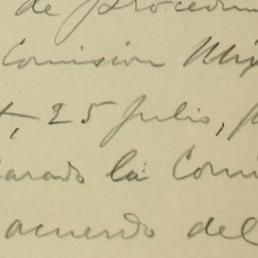 de procedim
Comision Mix
t, 25 Julio, p
arado la Comi
acuerdo del